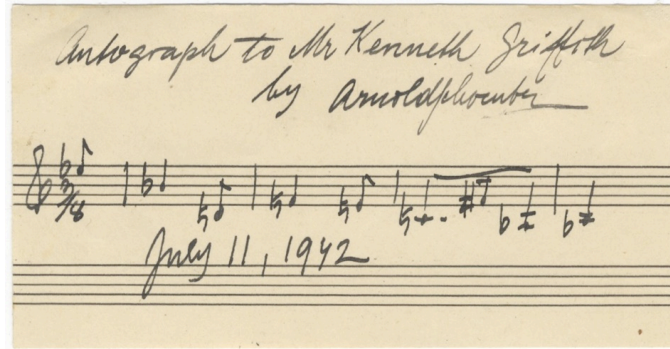 Autograph to Mr Kenneth Griffith
by Arnold Schoenberg
3/8
July 11, 1942